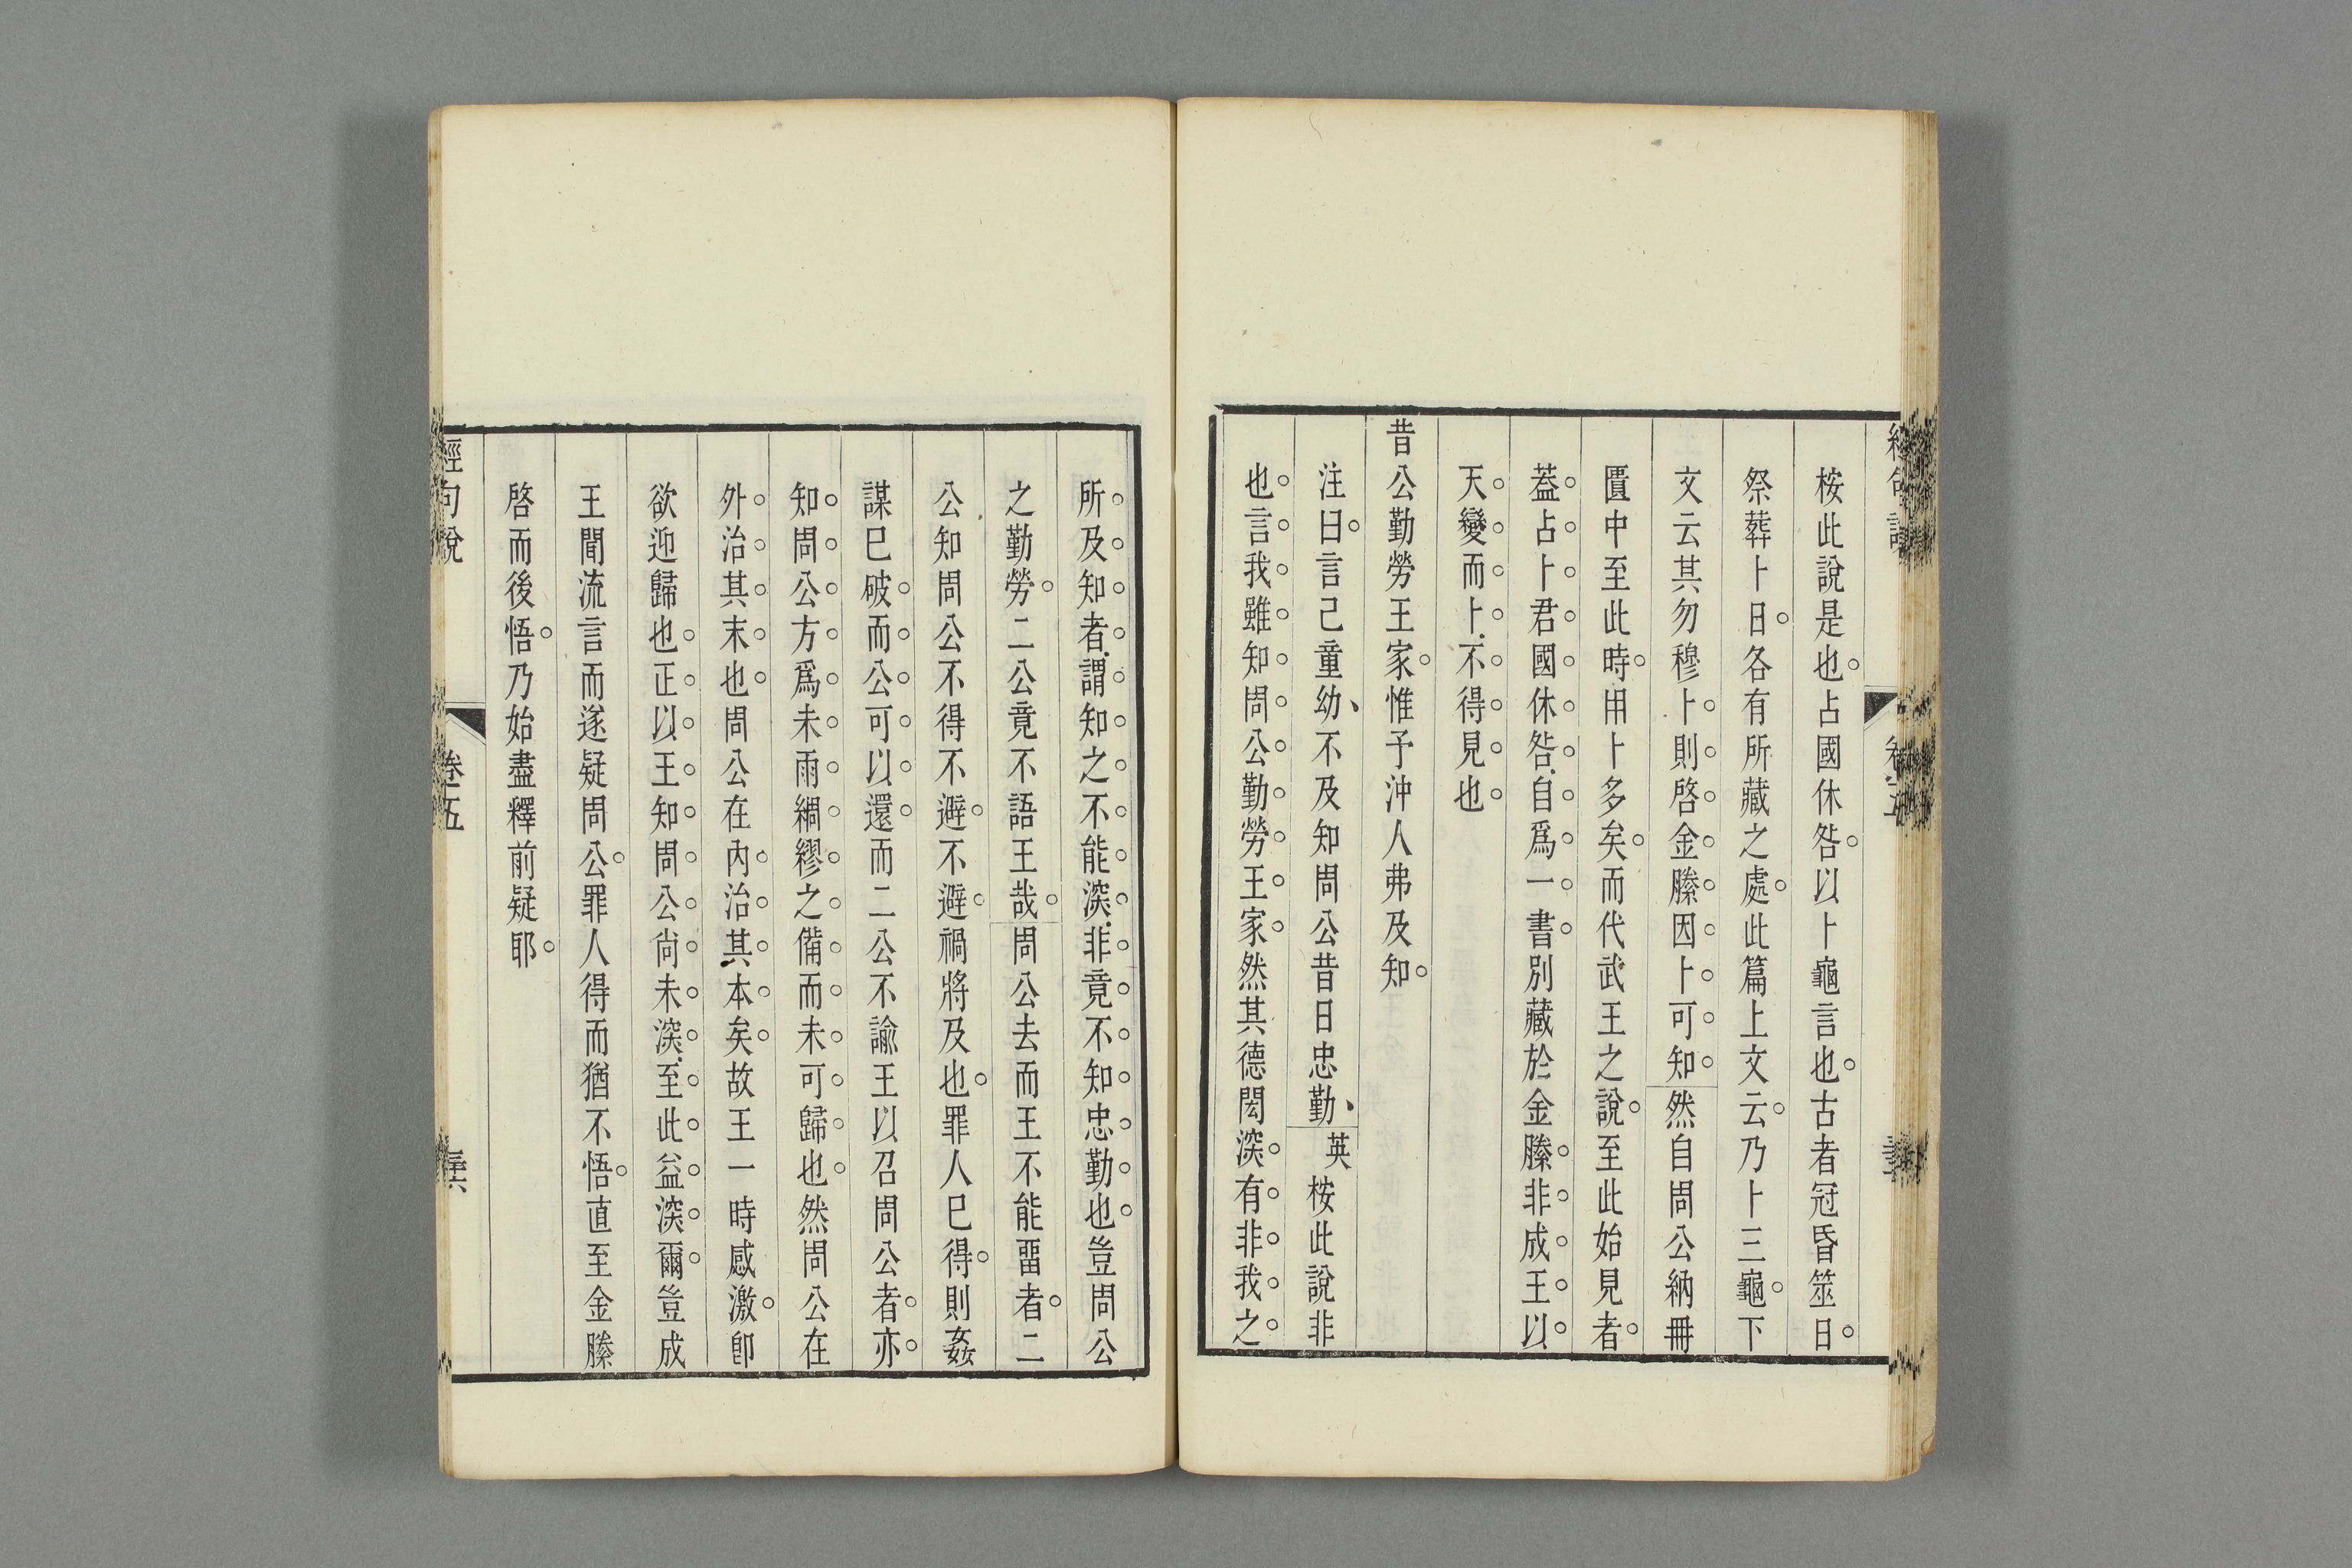 桉此說是也占國休咎以卜龜言也古者冠昏筮日
祭葬卜日各有所藏之處此篇上文云乃卜三龜下
文云其勿穆卜則啓金縢因卜可知然自周公納冊
匱中至此時用卜多矣而代武王之說至此始見者
葢占卜君國休咎自爲一書別藏於金縢非成王以
天變而卜不得見也
昔公勤勞王家惟予沖人弗及知
注曰言己童幼不及知周公昔日忠勤英桉此說非
也言我雖知周公勤勞王家然其德閎深有非我之
所及知者謂知之不能深非竟不知忠勤也豈周公
之勤勞二公竟不語王哉周公去而王不能畱者二
公知周公不得不避不避禍將及也罪人巳得則姦
謀巳破而公可以還而二公不諭王以召周公者亦
知周公方爲未雨綢繆之備而未可歸也然周公在
外治其末也周公在內治其本矣故王一時感激卽
欲迎歸也正以王知周公尙未深至此益深爾豈成
王聞流言而遂疑周公罪人得而猶不悟直至金縢
啓而後悟乃始盡釋前疑耶
經句說
卷五